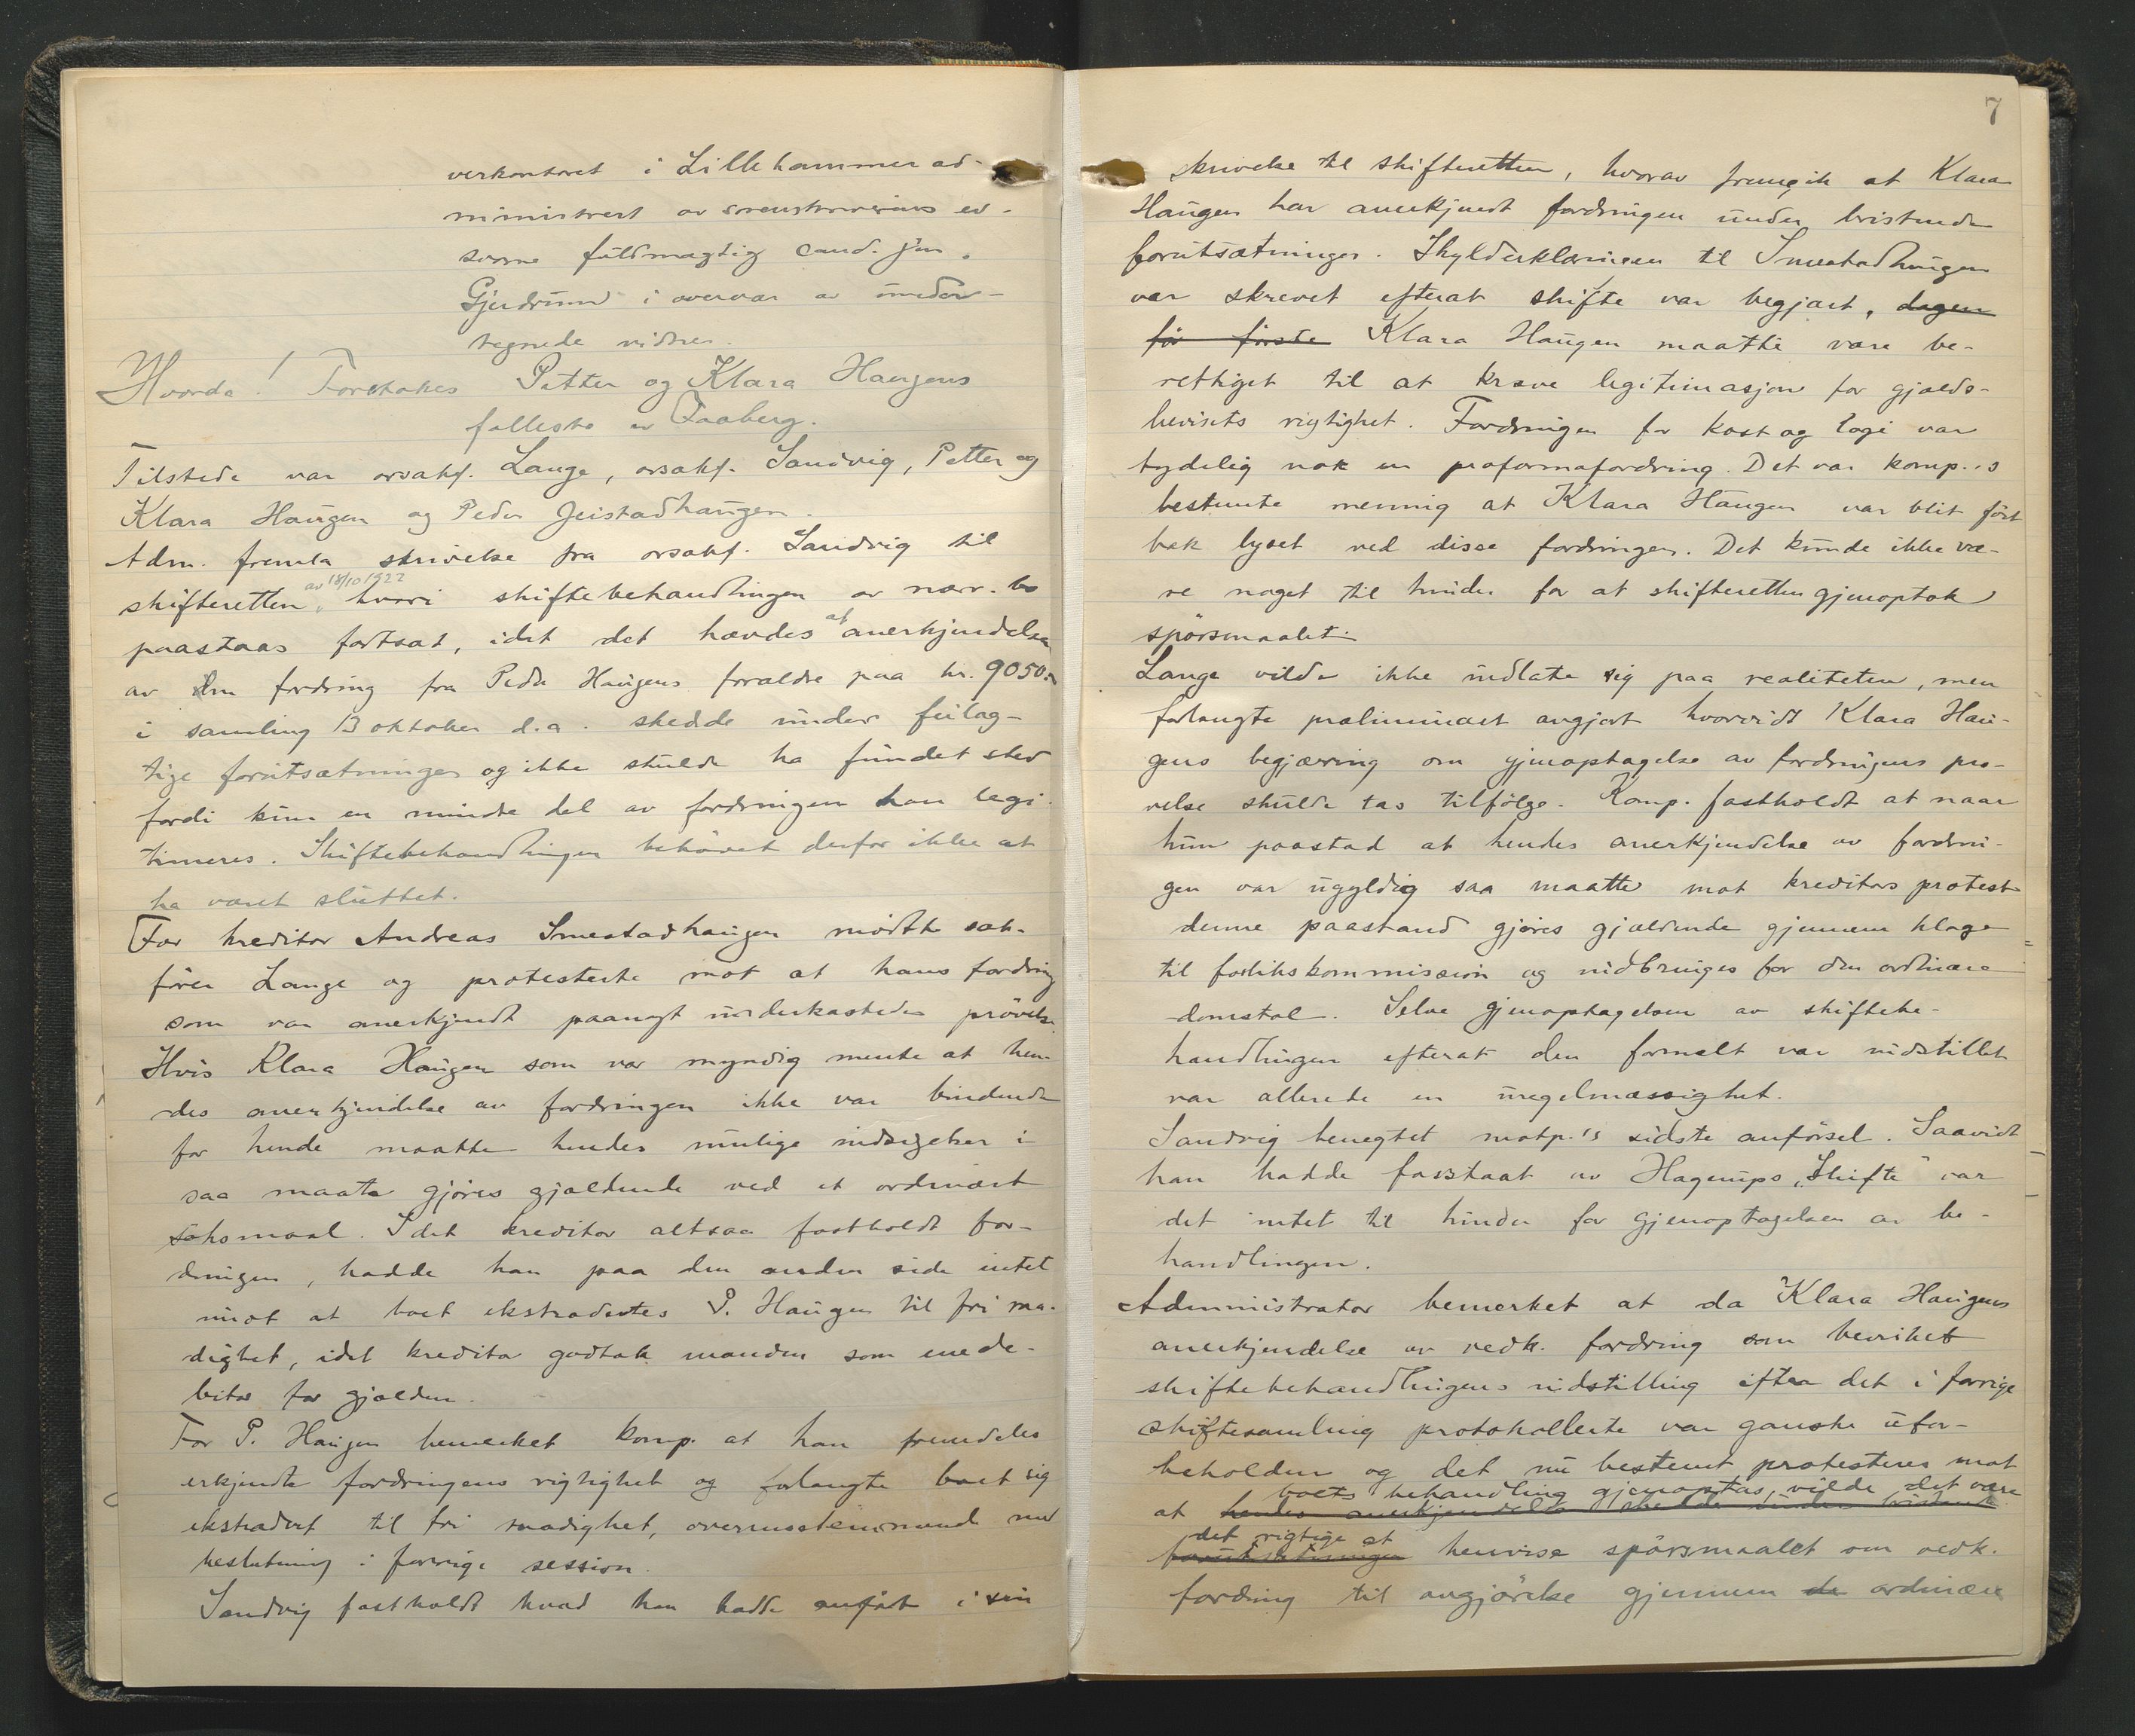 verkontoret i Lillehammer ad-
ministrert av sorenskriverens ed-
svorne fuldmægtig cand. jur.
Gjerdrum i overvær av under-
tegnede vidner.
Hvorda! Foretokes Petter og Klara Haugens
fællesbo av Faaberg.
Tilstede var orsakf. Lange, orsakf. Sandvig, Petter og
Klara Haugen og Peder Jeistadhaugen.
Adm. fremla skrivelse fra orsakf. Sandvig til
skifteretten av 18/10 1922 hvori skiftebehandlingen av nærv. bo
paastaas fortsat, idet det hævdes at anerkjendelsen
av den fordring fra Peder Haugens forældre paa kr. 9050.-
i samling 13 oktober d.a. skedde under feilag-
tige forutsætninger og ikke skulde ha fundet sted
fordi kun en mindre del av fordringen kan legi-
timeres. Skiftebehandlingen behövet derfor ikke at
ha været sluttet.
For kreditor Andreas Smestadhaugen mödte sak-
förer Lange og protesterte mot at hans fordring
som var anerkjendt paanyt underkastedes prövelse.
Hvis Klara Haugen som var myndig mente at hen-
des anerkjendelse av fordringen ikke var bindende
for hende maatte hendes mulige indsigelser i
saa maate gjöres gjældende ved et ordinært
söksmaal. Idet kreditor altsaa fastholdt for-
dringen, hadde han paa den anden side intet
imot at boet ekstradertes P. Haugen til fri raa-
dighet, idet kreditor godtok manden som enede-
bitor for gjælden.
For P. Haugen bemerket komp. at han fremdeles
erkjendte fordringens rigtighet og forlangte boet sig
ekstradert til fri raadighet, overensstemmende med
beslutning i forrige session.
Sandvig fastholdt hvad han hadde anfört i sin
7
skrivelse til skifteretten, hvorav fremgik at Klara
Haugen har anerkjendt fordringen under bristende
forutsætninger. Skylderklæringen til Smestadhaugen
var skrevet efterat skifte var begjært, dagen
för förste Klara Haugen maatte være be-
rettiget til at kræve legitimasjon for gjælds-
bevisets rigtighet. Fordringen for kost og logi var
tydelig nok en proformafordring. Det var komp.'s
bestemte mening at Klara Haugen var blit fört
bak lyset ved disse fordringer. Det kunde ikke væ-
re noget til hinder for at skifteretten gjenoptok
spörsmaalet.
Lange vilde ikke indlate sig paa realiteten, men
forlangte præliminært avgjort hvorvidt Klara Hau-
gens begjæring om gjenoptagelse av fordringens prö-
velse skulde tas tilfölge. Komp. fastholdt at naar
hun paastod at hendes anerkjendelse av fordrin-
gen var ugyldig saa maatte mot kreditors protest
denne paastand gjöres gjældende gjennem klage
til forlikskommission og indbringes for den ordinære
domstol. Selve gjenoptagelsen av skiftebe-
handlingen efterat den formelt var indstillet
var allerede en uregelmæssighet.
Sandvig benegtet motp.'s sidste anförsel. Saavidt
han hadde forstaat av Hagerups "Skifte" var
det intet til hinder for gjenoptagelsen av be-
handlingen.
Administrator bemerket at da Klara Haugens
anerkjendelse av vedk. fordring som bevirket
skiftebehandlingens indstilling efter det i forrige
skiftesamling protokollerte var ganske ufor-
beholden og det nu bestemt protesteres mot
boets behandling gjenoptas, vilde det være
at hendes anerkjendelse skedde under bristende
det rigtige at
forutsætninger henvise spörsmaalet om vedk.
fordring til avgjörelse gjennem de ordinære